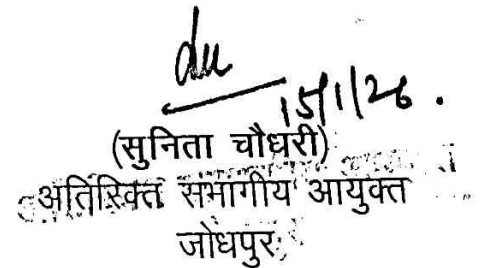 15/1/26.
(सुनिता चौधरी)
अतिरिक्त संभागीय आयुक्त
जोधपुर